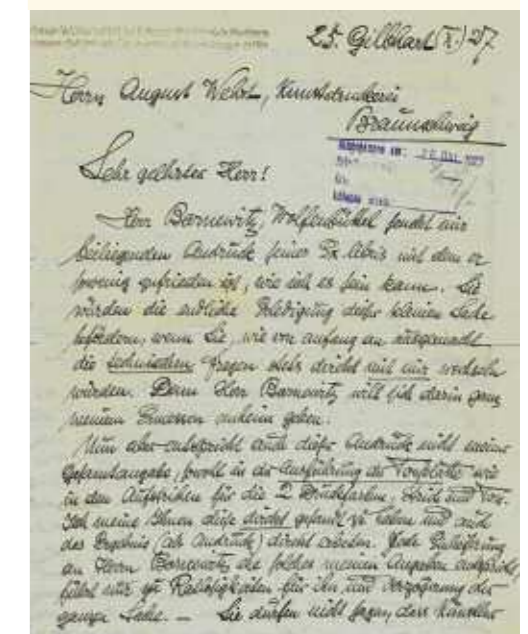 25. Gilbhart (X.) 27.
Herrn August Wehrt, Kunstdruckerei
Braunschweig
26. Okt. 1927
Sehr geehrter Herr!
Herr Barnewitz, Wolfenbüttel sendet mir
beiliegenden Andruck seines Ex libris mit dem er
sowenig zufrieden ist, wie ich es sein kann. Sie
würden die endliche Erledigung dieser kleinen Sache
befördern, wenn Sie, wie von anfang an ausgemacht
die technischen Fragen stets direkt mit mir
würden. Denn Herr Barnewitz will sich darin ganz
meinem Ermessen anheim geben.
Nun aber entspricht auch dieser Andruck nicht meiner
Gesamtangabe, sowohl in der Ausführung der Tonplatte wie
in den Aufstrichen für die 2 Druckfarben, Strich und Ton.
Ich meine Ihnen diese direkt gesandt zu haben und auch
das Ergebnis (als Andruck) direkt erbeten. Jede Zulieferung
an Herrn Barnewitz, die solches meinen Angaben entspricht,
führt nur zu für ihn und Verzögerung der
ganzen Sache. — Sie dürfen nicht sagen, dass Künstler